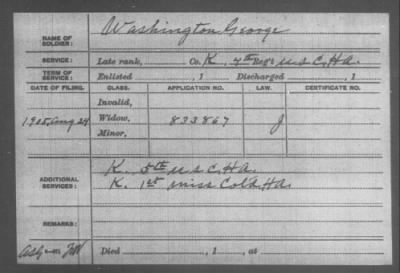 NAME OF SOLDIER: Washington George
SERVICE: Late rank, Co. K, 4th Reg't U S C, H A.
TERM OF SERVICE: Enlisted , 1 Discharged , 1
DATE OF FILING. CLASS. APPLICATION NO. LAW. CERTIFICATE NO.
Invalid,
1905, Aug 24 Widow, 833867 J
Minor,
K. 5th U S C, H A.
ADDITIONAL SERVICES: K. 1st Miss Cold H A.
REMARKS:
Died , 1 , at